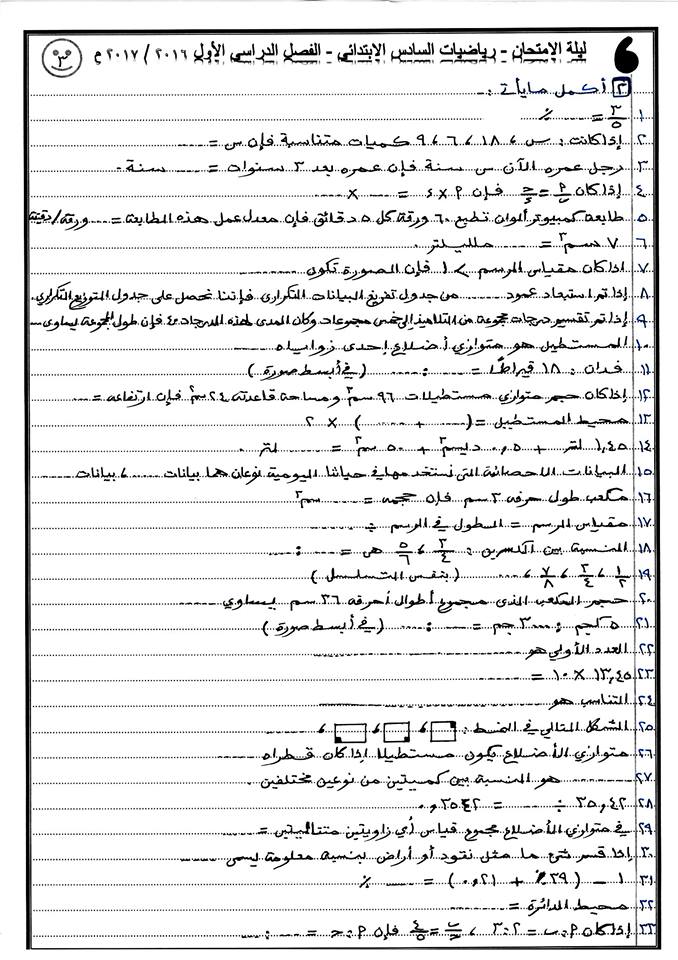 ليلة الإمتحان - رياضيات السادس الإبتدائي - الفصل الدراسي الأول ٢٠١٦ / ٢٠١٧ م
٣
٢ أكمل ما يأتي :-
١ ٣/٥ = ...... %
٢ إذا كانت : س ، ١٨ ، ٦ ، ٩ كميات متناسبة فإن س = ......
٣ رجل عمره الآن س سنة فإن عمره بعد ٣ سنوات = ...... سنة.
٤ إذا كان ٢/ب = ج/د فإن ٢ × د = ...... × ......
٥ طابعة كمبيوتر ألوان تطبع ٦٠ ورقة كل ٥ دقائق فإن معدل عمل هذه الطابعة = ...... ورقة/دقيقة
٦ ٧ سم٣ = ...... ملليلتر.
٧ إذا كان مقياس الرسم > ١ فإن الصورة تكون ......
٨ إذا تم استبعاد عمود ...... من جدول تفريغ البيانات التكراري فإننا نحصل على جدول التوزيع التكراري.
٩ إذا تم تقسيم درجات مجموعة من التلاميذ إلى خمس مجموعات وكان المدى لهذه الدرجات ٤٠ فإن طول المجموعة يساوى ......
١٠ المستطيل هو متوازي أضلاع إحدى زواياه ......
١١ فدان : ١٨ قيراطاً = ...... : ...... ( في أبسط صورة )
١٢ إذا كان حجم متوازي مستطيلات ٩٦ سم٣ ومساحة قاعدته ٢٤ سم٢ فإن ارتفاعه = ......
١٣ محيط المستطيل = ( ...... + ...... ) × ٢
١٤ ١,٤٥ لتر + ٠,٥ ديسم٣ + ٥٠ سم٣ = ...... لتر.
١٥ البيانات الاحصائية التى نستخدمها في حياتنا اليومية نوعان هما بيانات ...... ، بيانات ......
١٦ مكعب طول حرفه ٢ سم فإن حجمه = ...... سم٣
١٧ مقياس الرسم = الطول في الرسم ÷ ......
١٨ النسبة بين الكسرين : ٣/٤ ، ٥/٦ هى = ...... : ......
١٩ ١/٢ ، ٣/٤ ، ٧/٨ ، ...... ( بنفس التسلسل )
٢٠ حجم المكعب الذى مجموع أطوال أحرفه ٣٦ سم يساوي ......
٢١ ٥ كجم : ٣٠٠٠ جم = ...... : ...... ( في أبسط صورة )
٢٢ العدد الأولي هو ......
٢٣ ١٣,٤٥ × ١٠ = ......
٢٤ التناسب هو ......
٢٥ الشكل التالي في النمط : ، ، ،
٢٦ متوازي الأضلاع يكون مستطيلا إذا كان قطراه ......
٢٧ ...... هو النسبة بين كميتين من نوعين مختلفين.
٢٨ ٣٥,٤٢ ÷ ...... = ٠,٣٥٤٢
٢٩ في متوازي الأضلاع مجموع قياس أي زاويتين متتاليتين = ......
٣٠ إذا قسم شئ ما مثل نقود أو أراض بنسبة معلومة يسمى ......
٣١ ١ - ( ٢٩٪ + ٠,٢١ ) = ...... %
٣٢ محيط الدائرة = ......
٣٣ إذا كان ٢ : ب = ٢ : ٣ ، ب/ج = ٤/٥ فإن ٢ : ج = ...... : ......